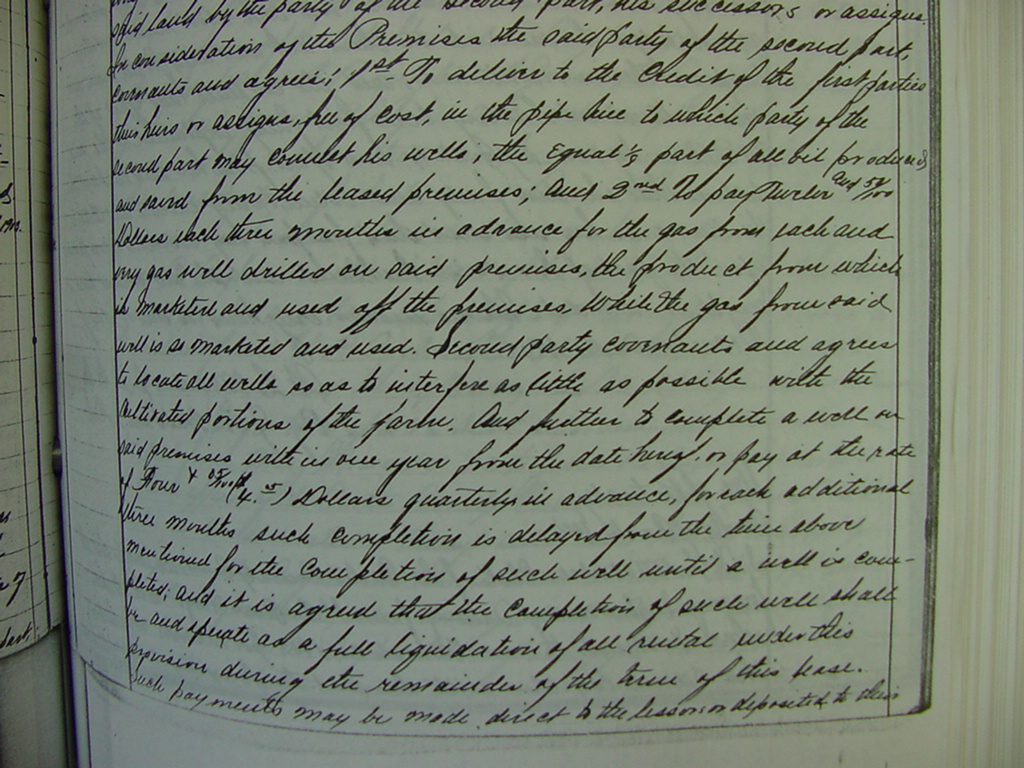 said land by the party of the second part, his successors or assigns.
In consideration of the Premises the said party of the second part,
covenants and agrees: 1st To deliver to the Credit of the first parties
their heirs or assigns, free of cost, in the pipe line to which party of the
second part may connect his wells, the Equal 1/8 part of all oil produced
and saved from the leased premises; and 2nd To pay Twelve and 50/100
Dollars each three months in advance for the gas from each and
every gas well drilled on said premises, the product from which
is marketed and used off the premises, while the gas from said
well is so marketed and used. Second party covenants and agrees
to locate all wells so as to interfere as little as possible with the
cultivated portions of the farm. And further to complete a well on
said premises within one year from the date hereof. or pay at the rate
of Four & Dollars quarterly in advance, for each additional
three months such completion is delayed from the time above
mentioned for the completion of such well until a well is com-
pleted; and it is agreed that the completion of such well shall
be and operate as a full liquidation of all rental under this
provision during the remainder of the term of this lease.
Such payments may be made direct to the lessors or deposited to their
7